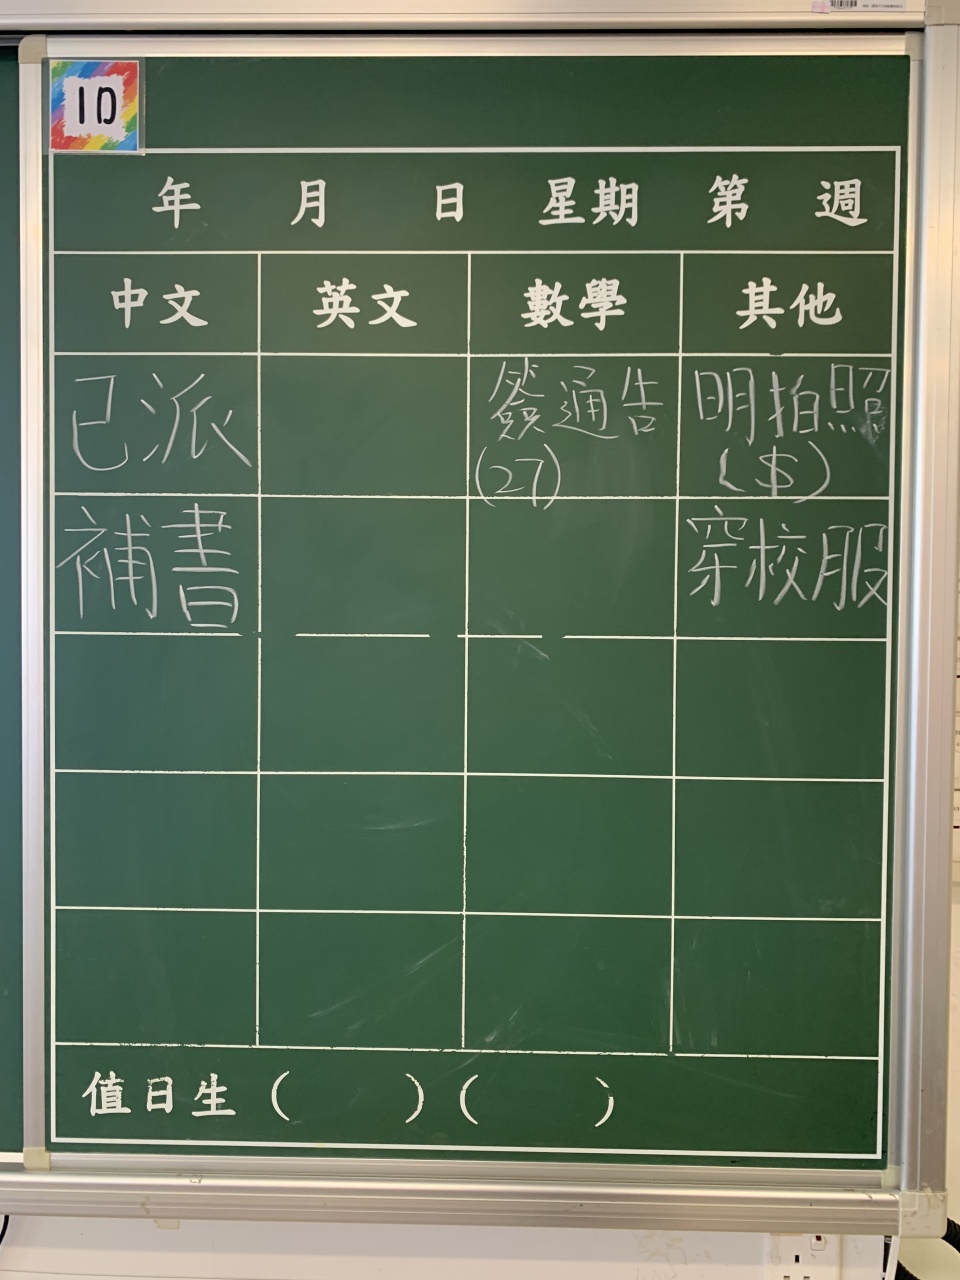 1D
年 月 日 星期 第 週
中文 英文 數學 其他
已派 簽通告 明拍照
(27) ($)
補書 穿校服
值日生 ( ) ( )